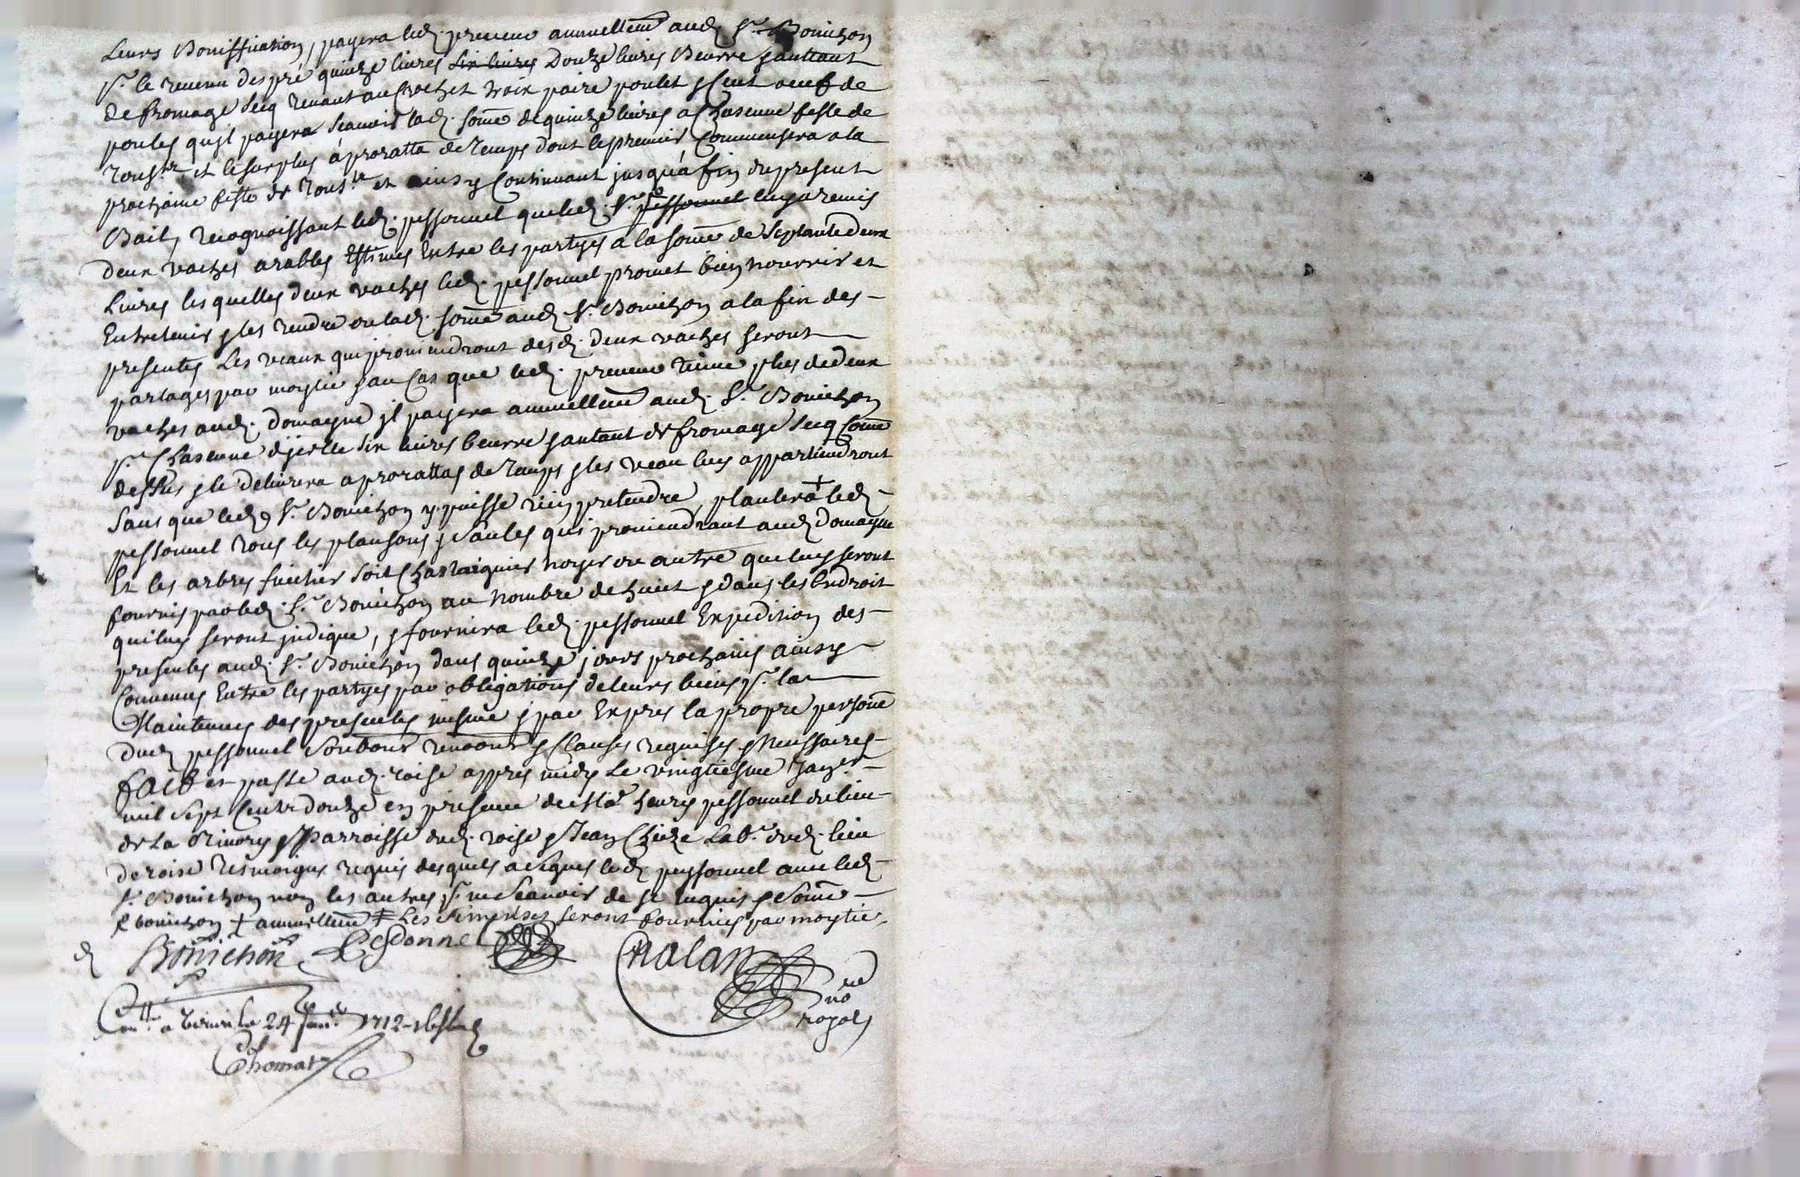 Leurs Boniffication, payera led. preneur annuellem̃ aud. Sr. Bonichon
pr. le revenu des pré quinze livres six livres Douze livres Beurre & autant
de fromage secq venant au Crochet trois paire poulet & Cent oeuf de
poules qu'jl payera scauoir lad. some de quinze livres a Chascune feste de
Tousts et le surplus à proratta de temps dont le premier Commensera a la
prochaine feste de Toustz et ainsy Continuant jusqu'á fin du present
Bail, recognoissant led. pessonnel que led. Sr. pessonnel luy a remis
deux vaches arables Estimes Entre les partyes a la some de septante deux
Livres lesquelles deux vaches led. pessonnel promet bien nourrir et
Entretenir & les rendre ou lad. some aud. Sr. Bonichon a la fin des
presentes Les veaux qui proviendront desd. deux vaches seront
partages par moytié & au Cas que led. preneur tiene plus de deux
vaches aud. domayne jl payera annuellem̃ aud. Sr. Bonichon
pr. Chascune d'jcelle six livres beurre & autant de fromage secq Come
dessus & le delivrera a prorattas de temps & les veau luy appartiendront
sans que led. Sr. Bonichon y puisse rien pretendre, plantera + led.
pessonnel tous les plansons & saules qui proviendront aud. domayne
Et les arbres fruitier soit Chastaignier noyer ou autre que luy seront
fournis par led. Sr. Bonichon au nombre de huict & dans les Endroit
qui luy seront jndique, & fournira led. pessonnel Expedition des
presentes aud. Sr. Bonichon dans quinze jours prochains ainsy
Convenus Entre les partyes par obligations de leurs biens pr. la
Maintenue des presentes mesme & par Expres la propre persone
dud. pessonnel & Clauses requises & necessaires
Faict et passé aud. roise appres midy Le vingtiesme Janer
mil sept Cents douze en presence de Henry pessonnel du lieu
de La & Parroisse dud. roise & Jean Labr. dud. lieu
de roise tesmoigns requis desquels a signés led. pessonnel avec led.
Sr. Bonichon non les autres pr. ne scauoir de ce enquis & some
& bonichon + annuellem̃ # Les semences seront fournies par moytié
Bonichon Pessonnel Chalan
nore
royal
Conttr. a le 24 janer. 1712
Thomas